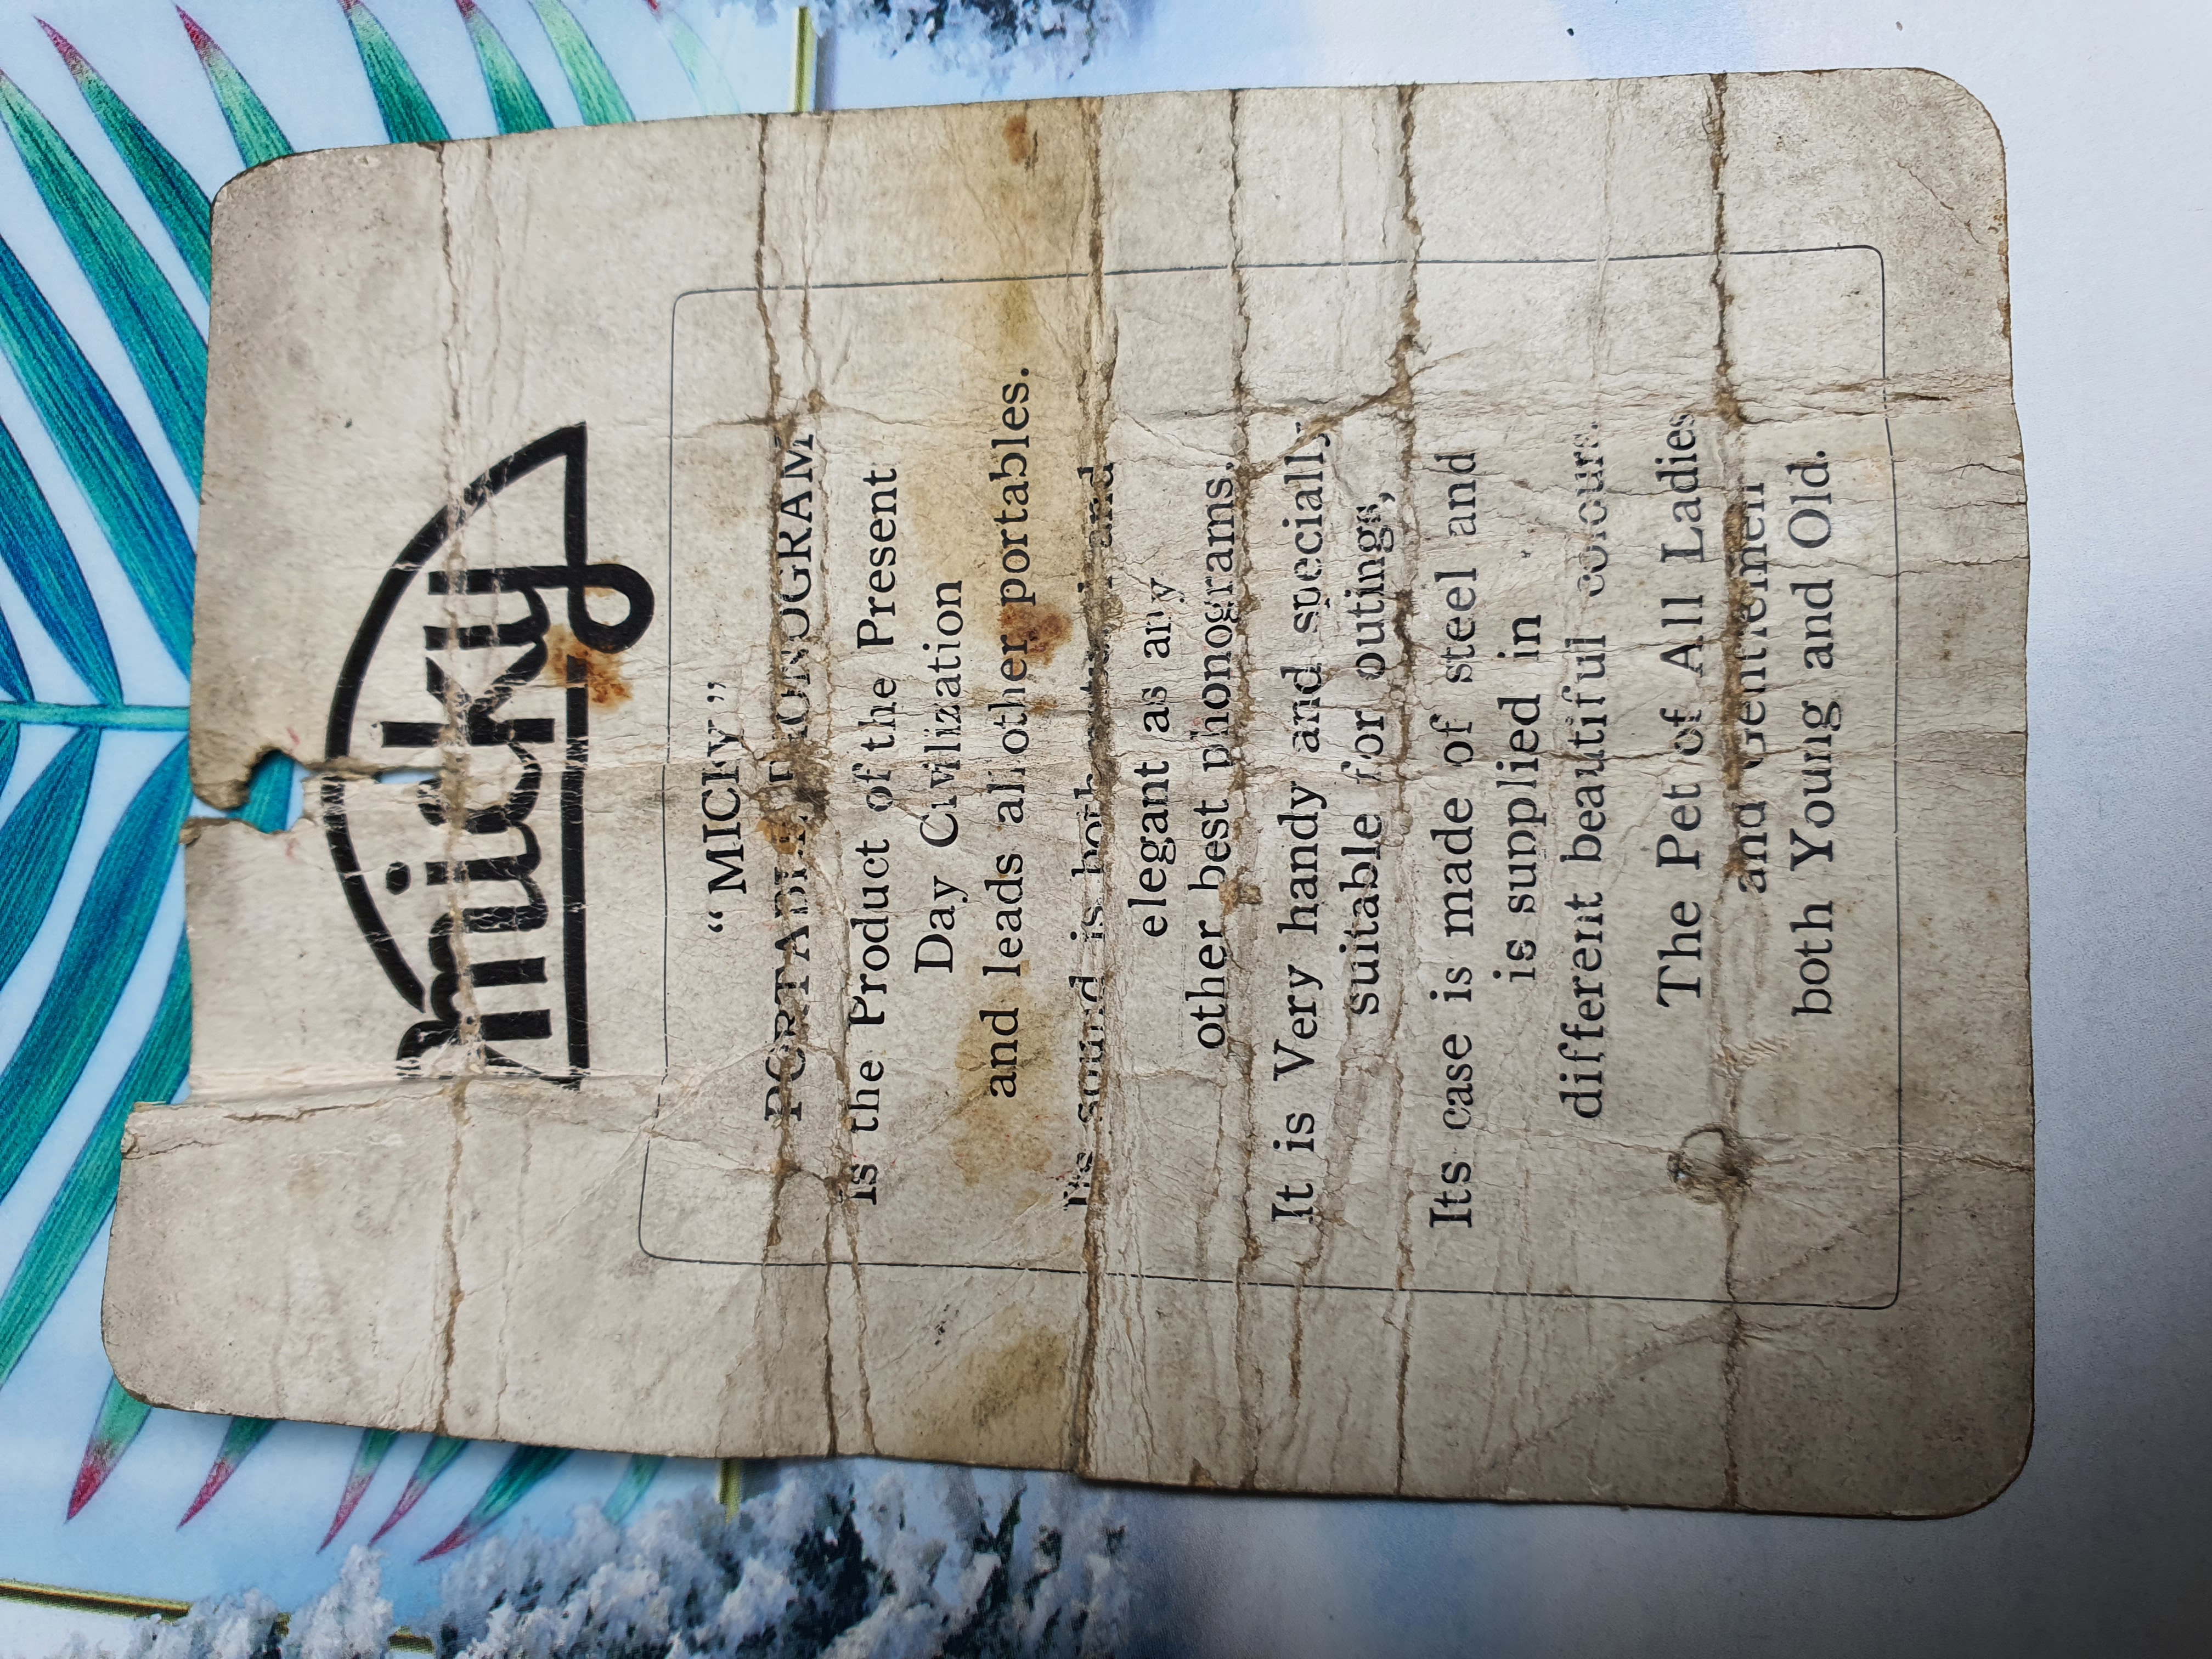 micky
“MICKY”
PORTABLE
is the Product of the Present
Day Civilization
and leads all other portables.
Its sound is both natural and
elegant as any
other best phonograms.
It is Very handy and specially
suitable for outings,
Its case is made of steel and
is supplied in
different beautiful colours.
The Pet of All Ladies
and Gentlemen
both Young and Old.